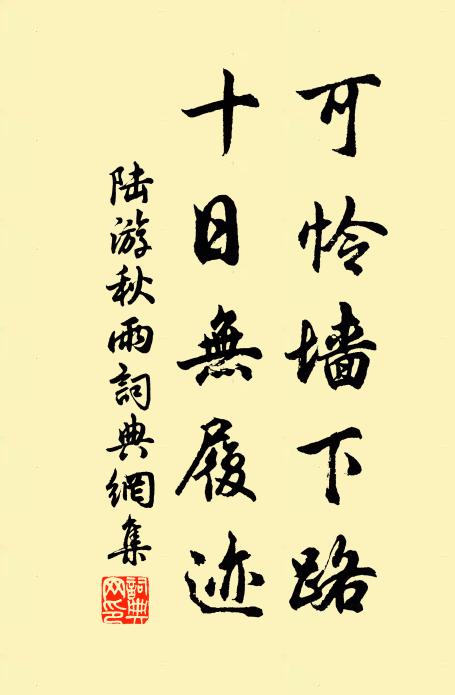 可怜墙下路
十日無履迹
陆游秋雨詞典網集
詞典网印